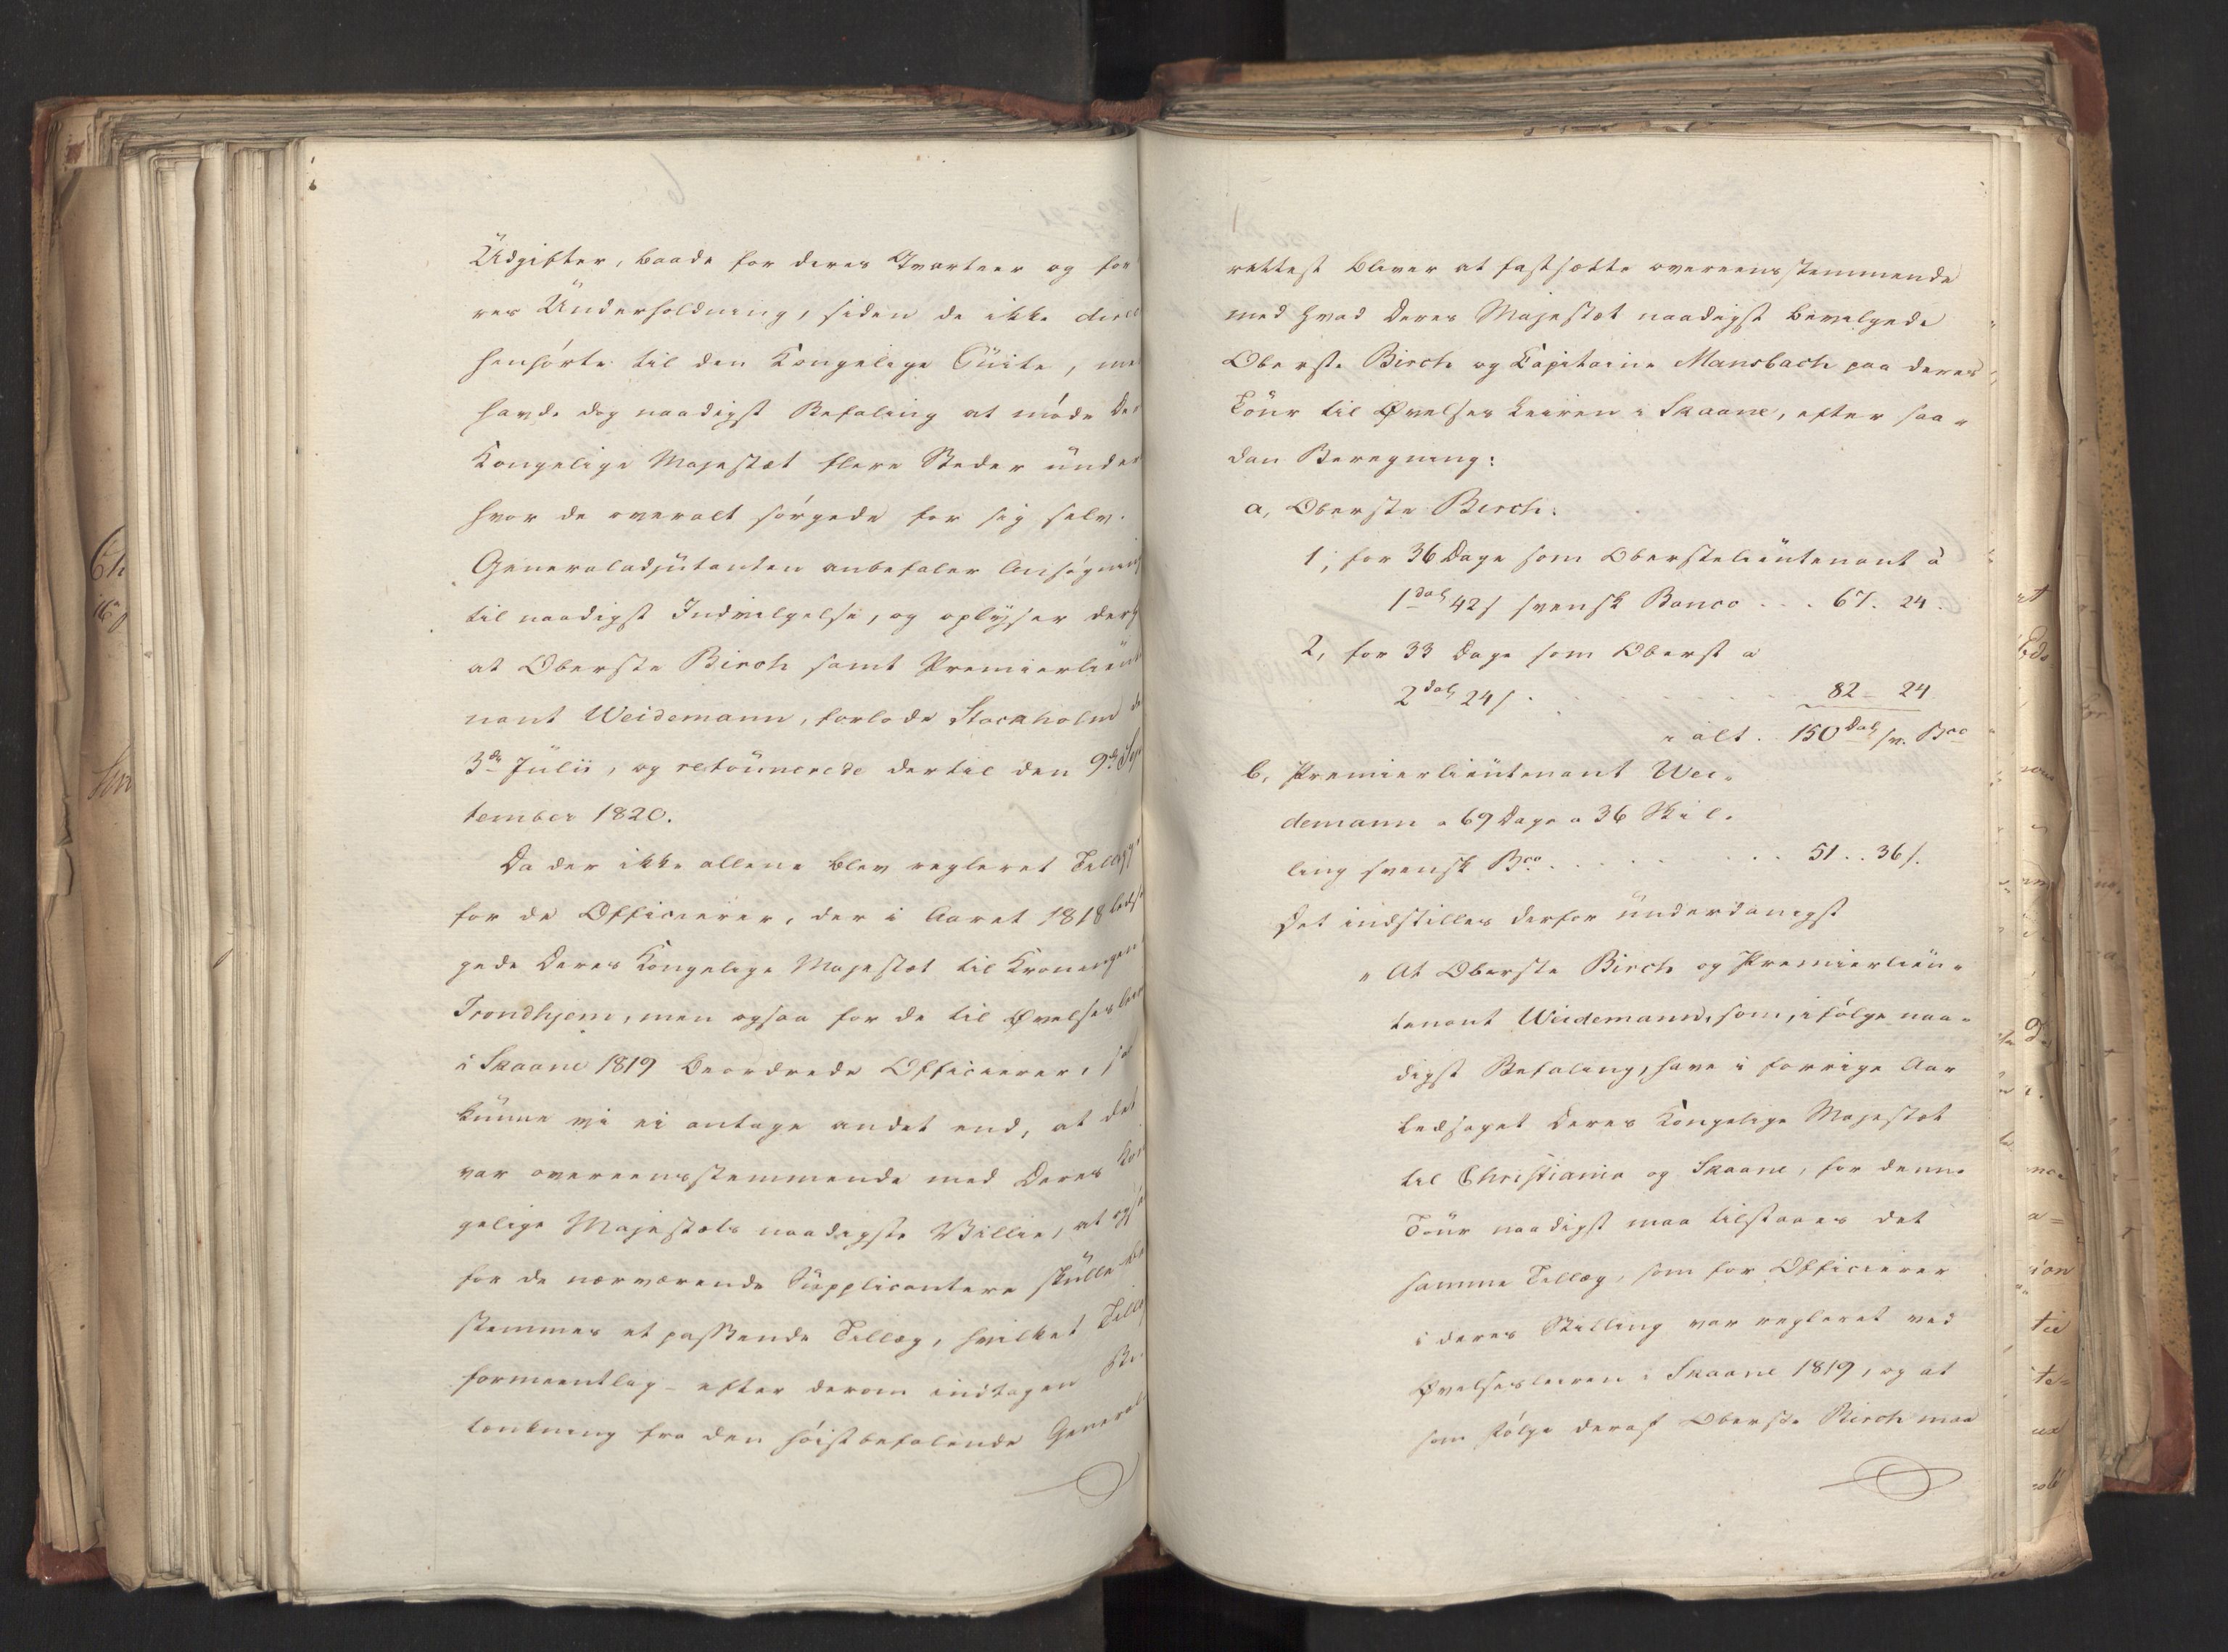 Udgifter, baade for deres Qvarteer og for
res Underholdning, siden de ikke
henhørte til den Kongelige Suite, me
havde dog naadigst Befaling at møde De
Kongelige Majestæt flere Steder under
hvor de overalt sørgede for sig selv.
Generaladjutanten anbefaler Ansøgning
til naadigst Indvilgelse, og oplyser derh
at Oberste Birch samt Premierlieut
nant Weidemann, forlode Stockholm d
3de Julii, og retournerede dertil den 9de Sep
tember 1820.
Da der ikke allene blev regleret Tillæg
for de Officierer, der i Aaret 1818 leds
gede Deres Kongelige Majestæt til Kroningen
Trondhjem, men ogsaa for de til Øvelseslei
i Skaane 1819 beordrede Officierer, s
kunne vi ei antage andet end, at det
var overeensstemmende med Deres Kon
gelige Majestæts naadigste Villie, at ogsa
for de nærværende Supplicantere skulle be
stemmes et passende Tillæg, hvilket Till
formeentlig - efter derom indtagen Be
tænkning fra den høistbefalende General
rettest bliver at fastsætte overeensstemmende
med hvad Deres Majestæt naadigst bevilgede
Oberste Birch og Capitaine Mansbach paa deres
Tour til Øvelses Leiren i Skaane, efter saa-
dan Beregning:
a, Oberste Birch:
1, for 36 Dage som Oberstelieutenant à
1 dal 42 s svensk Banco . . . 67. 24.
2, for 33 Dage som Oberst a
2 dal 24 s . . . . . . 82 - 24
i alt . 150 Dal sv. Bco
b, Premierlieutenant Wei-
demann a 69 Dage a 36 Skil-
ling svensk Bco . . . . . . 51 . . 36 s.
Det indstilles derfor underdanigst
"At Oberste Birch og Premierlieu-
tenant Weidemann, som, ifølge naa-
digst Befaling, have i forrige Aar
ledsaget Deres Kongelige Majestæt
til Christiania og Skaane, for denne
Tour naadigst maa tilstaaes det
samme Tillæg, som for Officierer
i deres Stilling var regleret ved
Øvelsesleiren i Skaane 1819, og at
som Følge deraf Oberste Birch maa